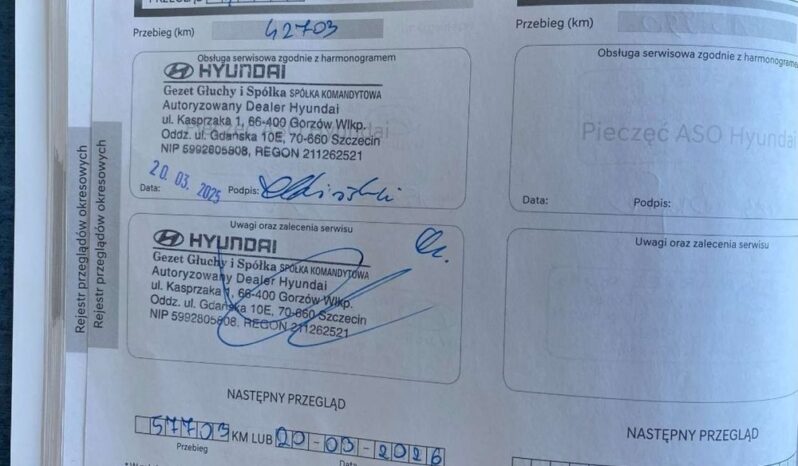 Przebieg (km) 42703
Obsługa serwisowa zgodnie z harmonogramem
HYUNDAI
Gezet Głuchy i Spółka SPÓŁKA KOMANDYTOWA
Autoryzowany Dealer Hyundai
ul. Kasprzaka 1, 66-400 Gorzów Wlkp.
Oddz. ul. Gdańska 10E, 70-660 Szczecin
NIP 5992805808, REGON 211262521
20. 03. 2025
Data: Podpis:
Uwagi oraz zalecenia serwisu
HYUNDAI
Gezet Głuchy i Spółka SPÓŁKA KOMANDYTOWA
Autoryzowany Dealer Hyundai
ul. Kasprzaka 1, 66-400 Gorzów Wlkp.
Oddz. ul. Gdańska 10E, 70-660 Szczecin
NIP 5992805808, REGON 211262521
NASTĘPNY PRZEGLĄD
57703 KM LUB 20-03-2026
Przebieg Data
Rejestr przeglądów okresowych
Rejestr przeglądów okresowych
Przebieg (km)
Obsługa serwisowa zgodnie z harmonograme
Pieczęć ASO Hyundai
Data: Podpis:
Uwagi oraz zalecenia serwisu
NASTĘPNY PRZEGLĄD